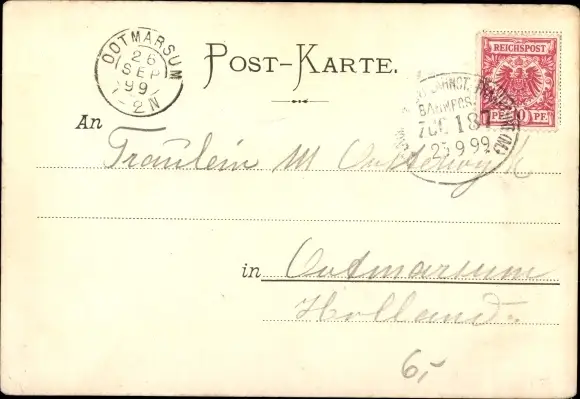 OOTMARSUM
26
SEP
99
-2N
POST-KARTE.
REICHSPOST
PF. 10 PF.
BAHNPOS.
ZUG 187
25.9.99
An Fräulein M
in Ootmarsum
Holland
6,-